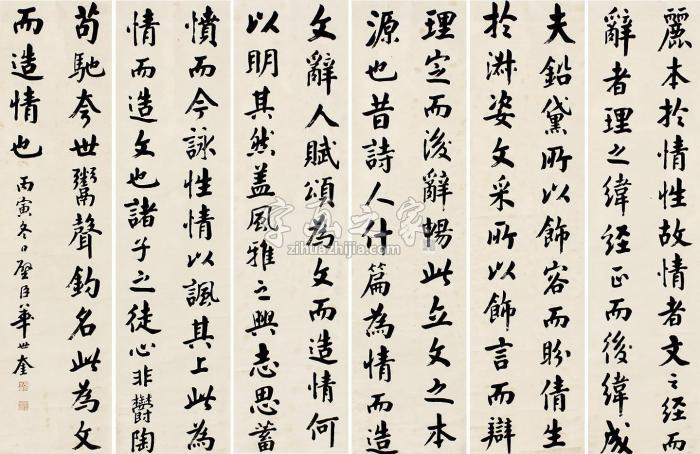 麗本於情性故情者文之經而
辭者理之緯經正而後緯成
夫鉛黛所以飾容而盼倩生
於淑姿文采所以飾言而辯
理定而後辭暢此立文之本
源也昔詩人什篇為情而造
文辭人賦頌為文而造情何
以明其然蓋風雅之興志思蓄
憤而今詠性情以諷其上此為
情而造文也諸子之徒心非鬱陶
苟馳夸世鬻聲釣名此為文
而造情也
丙寅冬日璧臣華世奎
字画之家
zihuazhijia.com